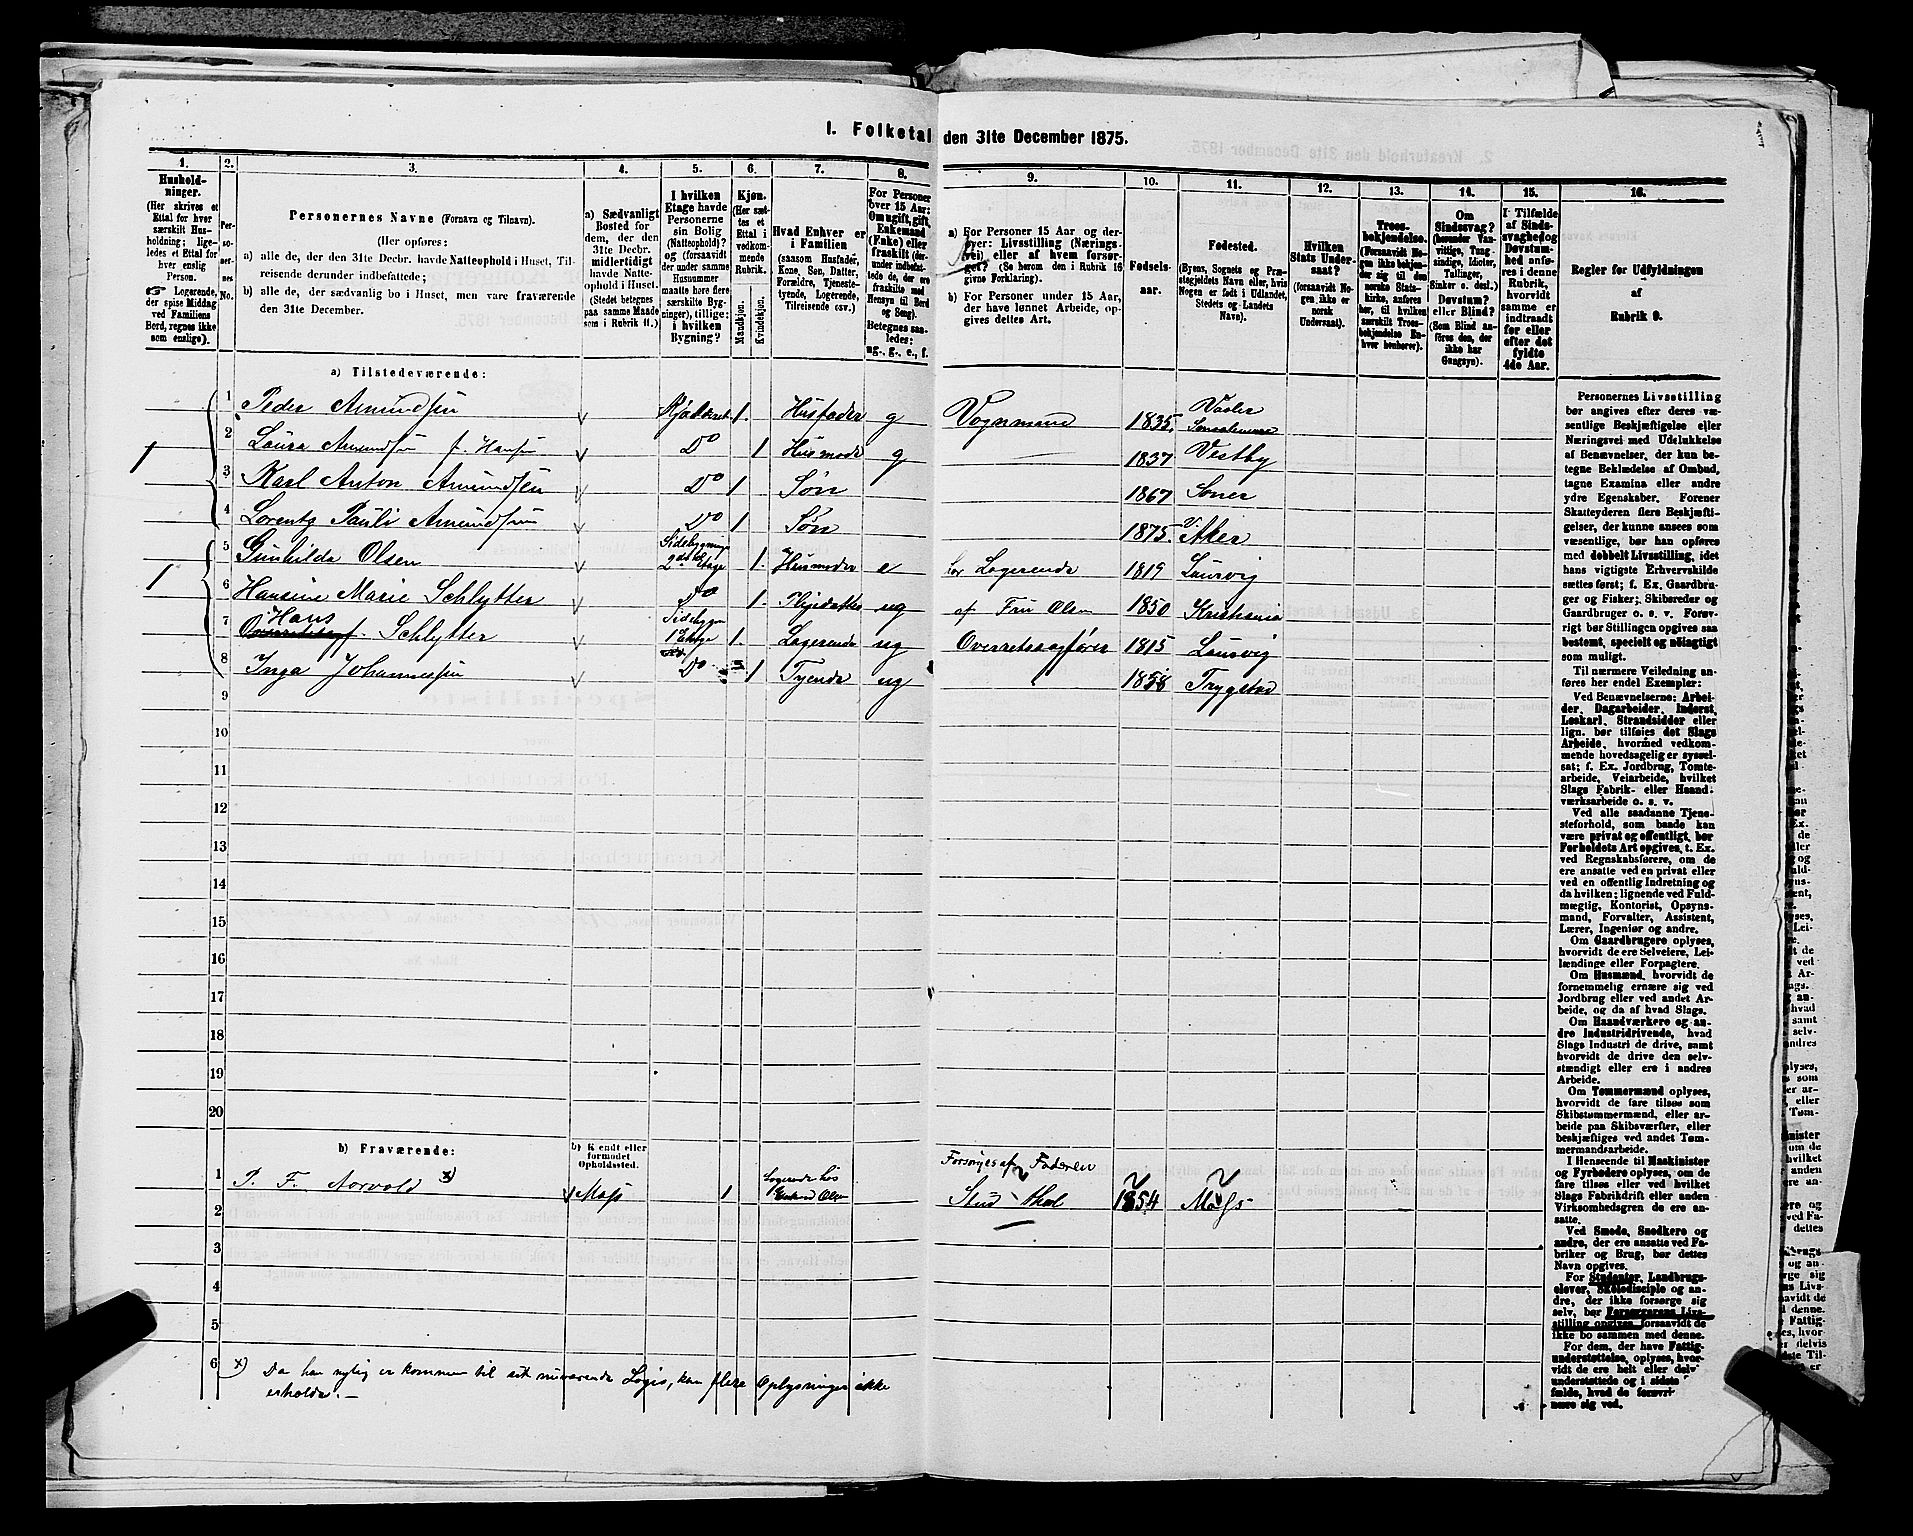 1. Folketal den 31te December 1875.
1.
Hushold-
ninger.
(Her skrives et
Ettal for hver
særskilt Hus-
holdning; lige-
ledes et Ettal for
hver enslig
Person.
☞ Logerende,
der spise Middag
ved Familiens
Bord, regnes ikke
som enslige).
2.
Per-
so-
ner-
nes
No.
3.
Personernes Navne (Fornavn og Tilnavn).
(Her opføres:
a) alle de, der den 31te Decbr. havde Natteophold i Huset, Til-
reisende derunder indbefattede;
b) alle de, der sædvanlig bo i Huset, men vare fraværende
den 31te December.
4.
a) Sædvanligt
Bosted for
dem, der den
31te Decbr.
midlertidigt
havde Natte-
ophold i Huset.
(Stedet betegnes
paa samme Maade
som i Rubrik 11.)
5.
I hvilken
Etage havde
Personerne
sin Bolig
(Natteophold)?
og (forsaavidt
der under samme
Husnummer
maatte høre flere
særskilte Byg-
ninger), tillige:
i hvilken
Bygning?
6.
Kjøn.
(Her sæt-
tes et
Ettal i
vedkom-
mende
Rubrik.
Mandkjøn.
Kvindekjøn.
7.
Hvad Enhver er
i Familien
(saasom Husfader,
Kone, Søn, Datter,
Forældre, Tjeneste-
tyende, Logerende,
Tilreisende osv.)
8.
For Personer
over 15 Aar:
Om ugift, gift,
Enkemand
(Enke) eller
fraskilt (der-
under indbefat-
tede de, der ere
fraskilte med
Hensyn til Bord
og Seng).
Betegnes saa-
ledes:
ug., g., e., f.
9.
a) For Personer 15 Aar og der-
over: Livsstilling (Nærings-
vei) eller af hvem forsør-
get? (Se herom den i Rubrik 16
givne Forklaring).
b) For Personer under 15 Aar,
der have lønnet Arbeide, op-
gives dettes Art.
10.
Fødsels-
aar.
11.
Fødested.
(Byens, Sognets og Præ-
stegjeldets Navn eller, hvis
Nogen er født i Udlandet,
Stedets og Landets
Navn).
12.
Hvilken
Stats Under-
saat?
(forsaavidt No-
gen ikke er
norsk
Undersaat).
13.
Troes-
bekjendelse.
(Forsaavidt No-
gen ikke bekjen-
der sig til den
norske Stats-
kirke, anføres
her, til hvilken
særskilt Troes-
bekjendelse En-
hver henhører).
14.
Om
Sindssvag?
(herunder Van-
vittige, Tung-
sindige, Idioter,
Tullinger,
Sinker o. desl.)
Døvstum?
eller Blind?
(Som Blind an-
føres den, der
ikke har
Gangsyn).
15.
I Tilfælde
af Sinds-
svaghed og
Døvstum-
hed anfø-
res i denne
Rubrik,
hvorvidt
samme er
indtraadt
før eller
efter det
fyldte
4de Aar.
16.
Regler for Udfyldningen
af
Rubrik 9.
a) Tilstedeværende:
1
1 Peder Amundsen Kjælderet 1. Husfader g Vognmand 1835. Vaaler Smaalenene
2 Laura Amundsen f. Hansen Do 1 Husmoder g 1837 Vestby
3 Karl Anton Amundsen Do 1 Søn 1867 Soner
4 Lorents Pauli Amundsen Do 1 Søn 1875 V. Aker
1
5 Gunhilda Olsen Sidebygninge 2den Etage 1. Husmoder e har Logerende 1819 Laurvig
6 Hansine Marie Schlytter Do 1. Pleiedatter ug af Fru Olsen 1850 Kristiania
7 Hans Schlytter Sidebygn 1 Etage 1. Logerende ug Overretssagfører 1815 Laurvig
8 Inga Johannessen Do 1 Tyende ug 1858 Trygstad
9
10
11
12
13
14
15
16
17
18
19
20
b) Fraværende:
b) Kendt eller
formodet
Opholdssted.
Forsørges af Faderen
1 P. F. Aarvold x) Moss 1 Logerende hos Enkefru Olsen Stud. 1854 Moss
2
3
4
5
6
x) Da han nylig er kommen til sit nuværende Logis, kan flere Oplysninger ikke
erholdes. —
Personernes Livsstilling
bør angives efter deres væ-
sentlige Beskjæftigelse eller
Næringsvei med Udelukkelse
af Benævnelser, der kun be-
tegne Beklædelse af Ombud,
tagne Examina eller andre
ydre Egenskaber. Forener
Skatteyderen flere Beskjæfti-
gelser, der kunne ansees som
væsentlige, bør han opføres
med dobbelt Livsstilling, idet
hans vigtigste Erhvervskilde
sættes først; f. Ex. Gaardbru-
ger og Fisker; Skibsreder og
Gaardbruger o. s. v. Forøv-
rigt bør Stillingen opgives saa
bestemt, specielt og nøiagtigt
som muligt.
Til nærmere Veiledning an-
føres her endel Exempler:
Ved Benævnelserne: Arbei-
der, Dagarbeider, Inderst,
Løskarl, Strandsidder eller
lign. bør tilføies det Slags
Arbeide, hvormed vedkom-
mende hovedsagelig er syssel-
sat; f. Ex. Jordbrug, Tomte-
arbeide, Veiarbeide, hvilket
Slags Fabrik- eller Haand-
værksarbeide o. s. v.
Ved alle saadanne Tjene-
steforhold, som baade kan
være privat og offentligt, bør
Forholdets Art opgives, t. Ex.
ved Regnskabsførere, om de
ere ansatte ved en privat eller
ved en offentlig Indretning og
da hvilken; lignende ved Fuld-
mægtig, Kontorist, Opsyns-
mand, Forvalter, Assistent,
Lærer, Ingeniør og andre.
Om Gaardbrugere oplyses,
hvorvidt de ere Selveiere, Lei-
lændinge eller Forpagtere.
Om Husmænd, hvorvidt de
fornemmelig ernære sig ved
Jordbrug eller ved andet Ar-
beide, og da af hvad Slags.
Om Haandværkere og an-
dre Industridrivende, hvad
Slags Industri de drive, samt
hvorvidt de drive den selv-
stændigt eller ere i andres
Arbeide.
Om Tømmermænd oplyses,
hvorvidt de fare tilsøs som
Skibstømmermænd, eller ar-
beide paa Skibsværfter, eller
beskjæftiges ved andet Tøm-
mermandsarbeide.
I Henseende til Maskinister
og Fyrbødere oplyses, om de
fare tilsøs eller ved hvilket
Slags Fabrikdrift eller anden
Virksomhedsgren de ere an-
satte.
Ved Smede, Snedkere og
andre, der ere ansatte ved Fa-
briker og Brug, bør dettes
Navn opgives.
For Studenter, Landbrugs-
elever, Skoledisciple og an-
dre, der ikke forsørge sig
selv, bør Forsørgerens Livs-
stilling opgives forsaavidt de
ikke bo sammen med denne.
For dem, der have Fattig-
understøttelse, oplyses, hvor-
vidt de ere helt eller delvis
understøttede og i sidste
fælde, hvad de forøvrigt
nære sig ved.